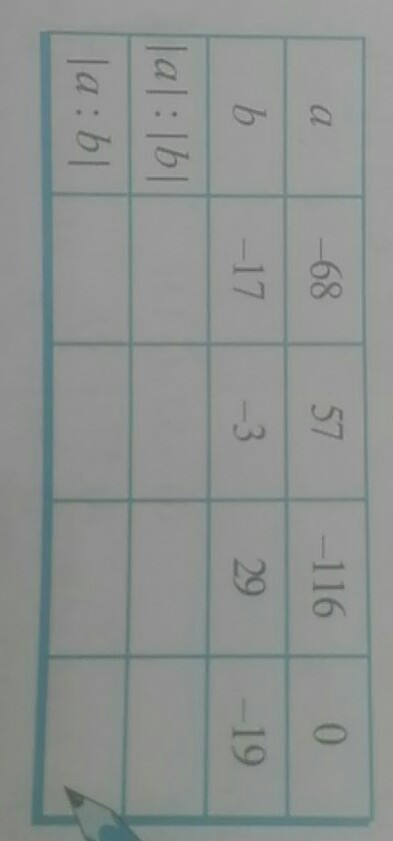 a −68 57 −116 0
b −17 −3 29 −19
|a| : |b|
|a : b|